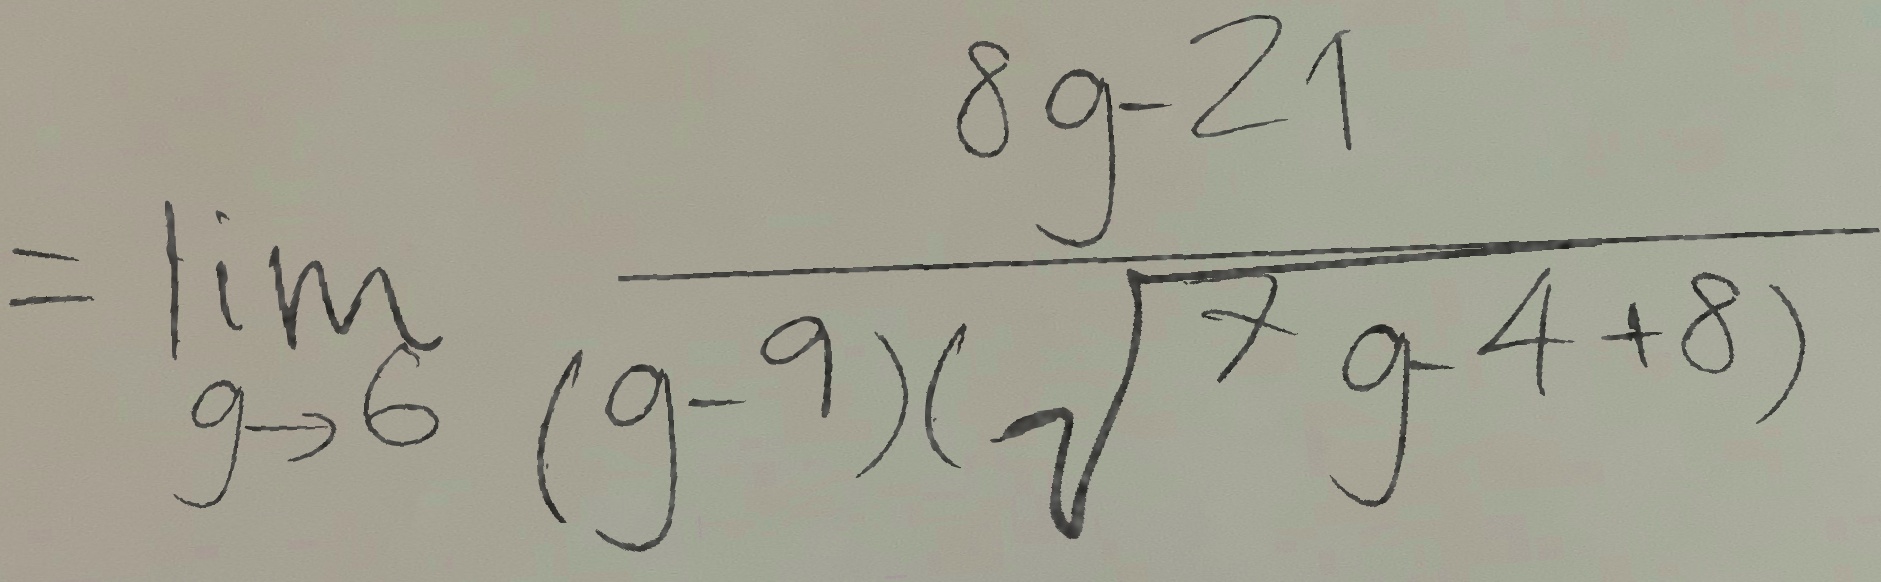 = \lim_{g \to 6} \frac{8g-21}{(g-9)(\sqrt{7g-4+8})}